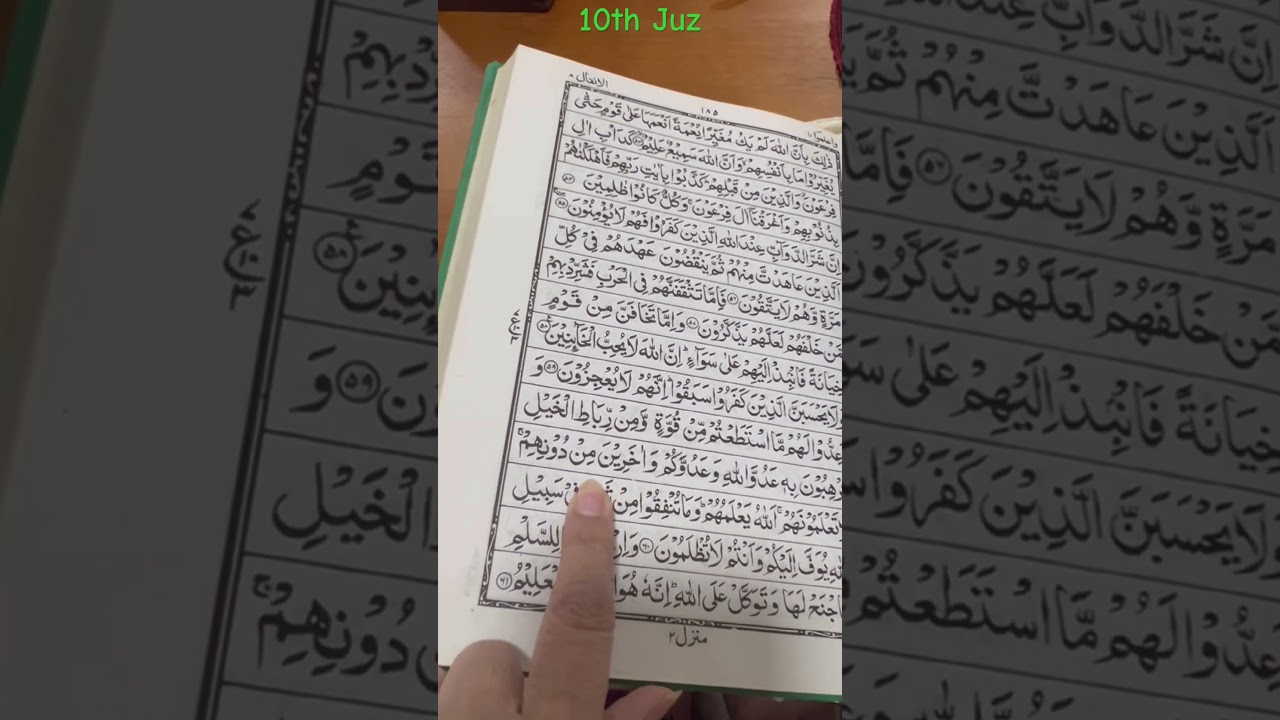 10th Juz
الانفال ٨
١٨٥
واعلموا ١٠
ذٰلِكَ بِاَنَّ اللّٰهَ لَمْ يَكُ مُغَيِّرًا نِّعْمَةً اَنْعَمَهَا عَلٰى قَوْمٍ حَتّٰى
يُغَيِّرُوْا مَا بِاَنْفُسِهِمْ وَاَنَّ اللّٰهَ سَمِيْعٌ عَلِيْمٌ ۵۳ كَدَاْبِ اٰلِ
فِرْعَوْنَ وَالَّذِيْنَ مِنْ قَبْلِهِمْ كَذَّبُوْا بِاٰيٰتِ رَبِّهِمْ فَاَهْلَكْنٰهُمْ
بِذُنُوْبِهِمْ وَاَغْرَقْنَاۤ اٰلَ فِرْعَوْنَ وَكُلٌّ كَانُوْا ظٰلِمِيْنَ ۵۴
اِنَّ شَرَّ الدَّوَآبِّ عِنْدَ اللّٰهِ الَّذِيْنَ كَفَرُوْا فَهُمْ لَا يُؤْمِنُوْنَ ۵۵
اَلَّذِيْنَ عَاهَدْتَّ مِنْهُمْ ثُمَّ يَنْقُضُوْنَ عَهْدَهُمْ فِيْ كُلِّ
مَرَّةٍ وَّهُمْ لَا يَتَّقُوْنَ ۵۶ فَاِمَّا تَثْقَفَنَّهُمْ فِي الْحَرْبِ فَشَرِّدْ بِهِمْ
مَّنْ خَلْفَهُمْ لَعَلَّهُمْ يَذَّكَّرُوْنَ ۵۷ وَاِمَّا تَخَافَنَّ مِنْ قَوْمٍ
خِيَانَةً فَانْۢبِذْ اِلَيْهِمْ عَلٰى سَوَآءٍ اِنَّ اللّٰهَ لَا يُحِبُّ الْخَآئِنِيْنَ ۵۸
وَلَا يَحْسَبَنَّ الَّذِيْنَ كَفَرُوْا سَبَقُوْا اِنَّهُمْ لَا يُعْجِزُوْنَ ۵۹ وَ
عِدُّوْا لَهُمْ مَّا اسْتَطَعْتُمْ مِّنْ قُوَّةٍ وَّمِنْ رِّبَاطِ الْخَيْلِ
رْهِبُوْنَ بِهٖ عَدُوَّ اللّٰهِ وَعَدُوَّكُمْ وَاٰخَرِيْنَ مِنْ دُوْنِهِمْ
تَعْلَمُوْنَهُمْ اَللّٰهُ يَعْلَمُهُمْ وَمَا تُنْفِقُوْا مِنْ سَبِيْلِ
يُوَفَّ اِلَيْكُمْ وَاَنْتُمْ لَا تُظْلَمُوْنَ ۶۰ وَاِنْ لِلسَّلْمِ
اجْنَحْ لَهَا وَتَوَكَّلْ عَلَى اللّٰهِ اِنَّهٗ هُوَ الْعَلِيْمُ ۶۱
منزل ۲